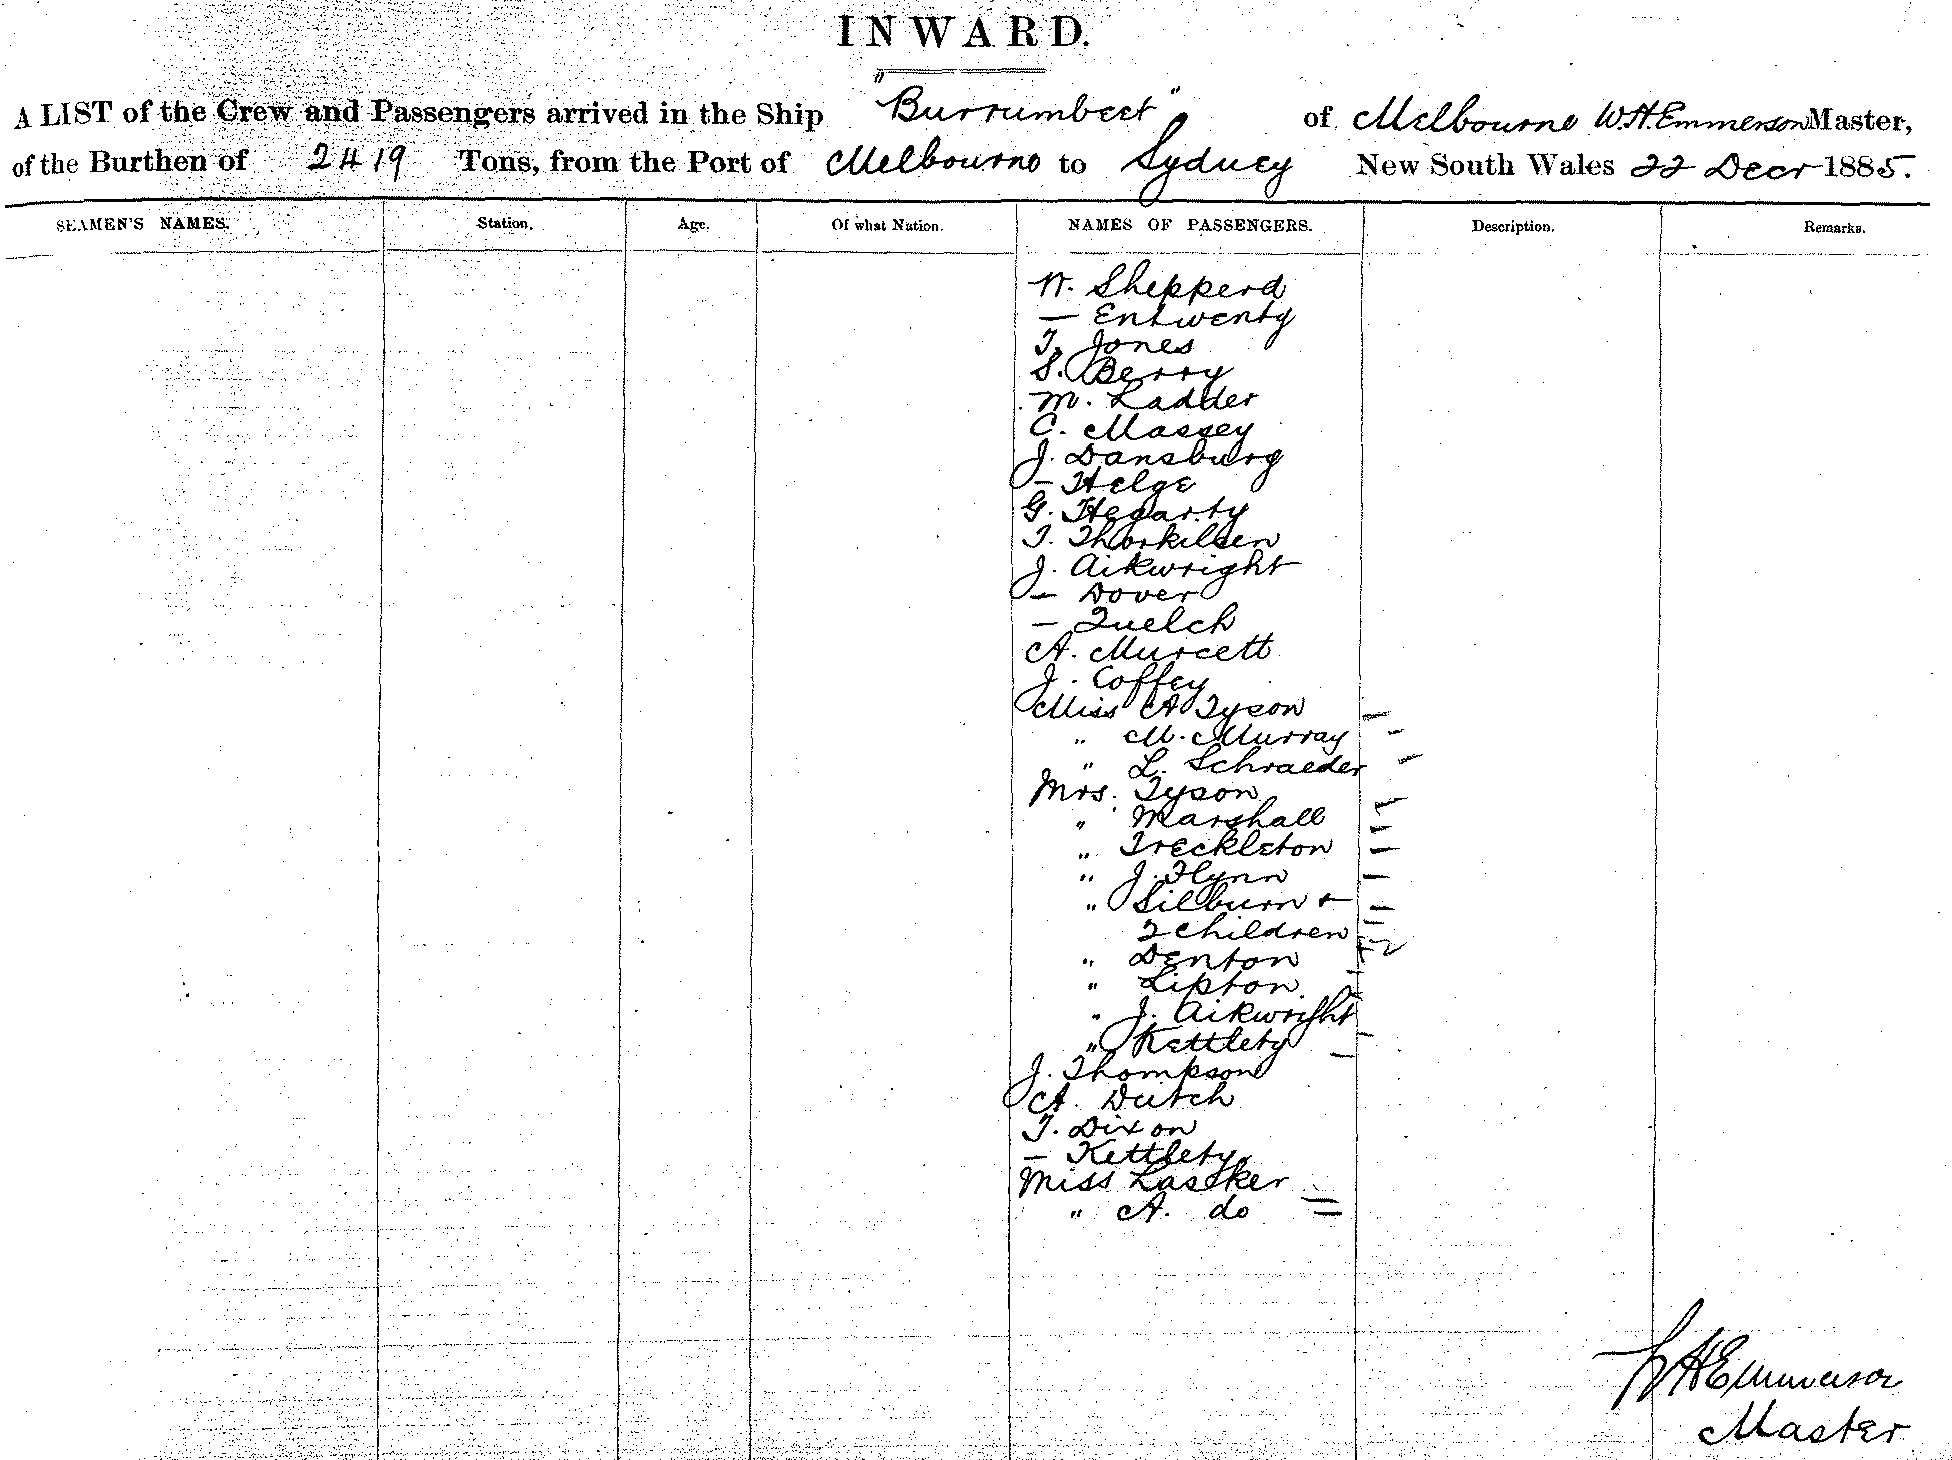 INWARD.
A LIST of the Crew and Passengers arrived in the Ship "Burrumbeet" of Melbourne W.H. Emmerson Master,
of the Burthen of 2419 Tons, from the Port of Melbourne to Sydney New South Wales 22 Decr 1885.
SEAMEN'S NAMES. Station. Age. Of what Nation. NAMES OF PASSENGERS. Description. Remarks.
W. Shepperd
— Entwenty
T. Jones
S. Berry
M. Ladder
C. Massey
J. Dansburg
— Helge
G. Hegarty
T. Thorkilsen
J. Aikwright
— Dover
— Quelch
A. Murcett
J. Coffey
Miss A Tyson
" M. Murray
" L. Schraeder
Mrs. Tyson
" Marshall
" Treckleton
" J. Flynn
" Silburn +
2 children
" Denton
" Lipton
" J. Aikwright
" Kettlety
J. Thompson
A. Dutch
T. Dixon
— Kettlety
Miss Lascker
" A. do
W H Emmerson
Master